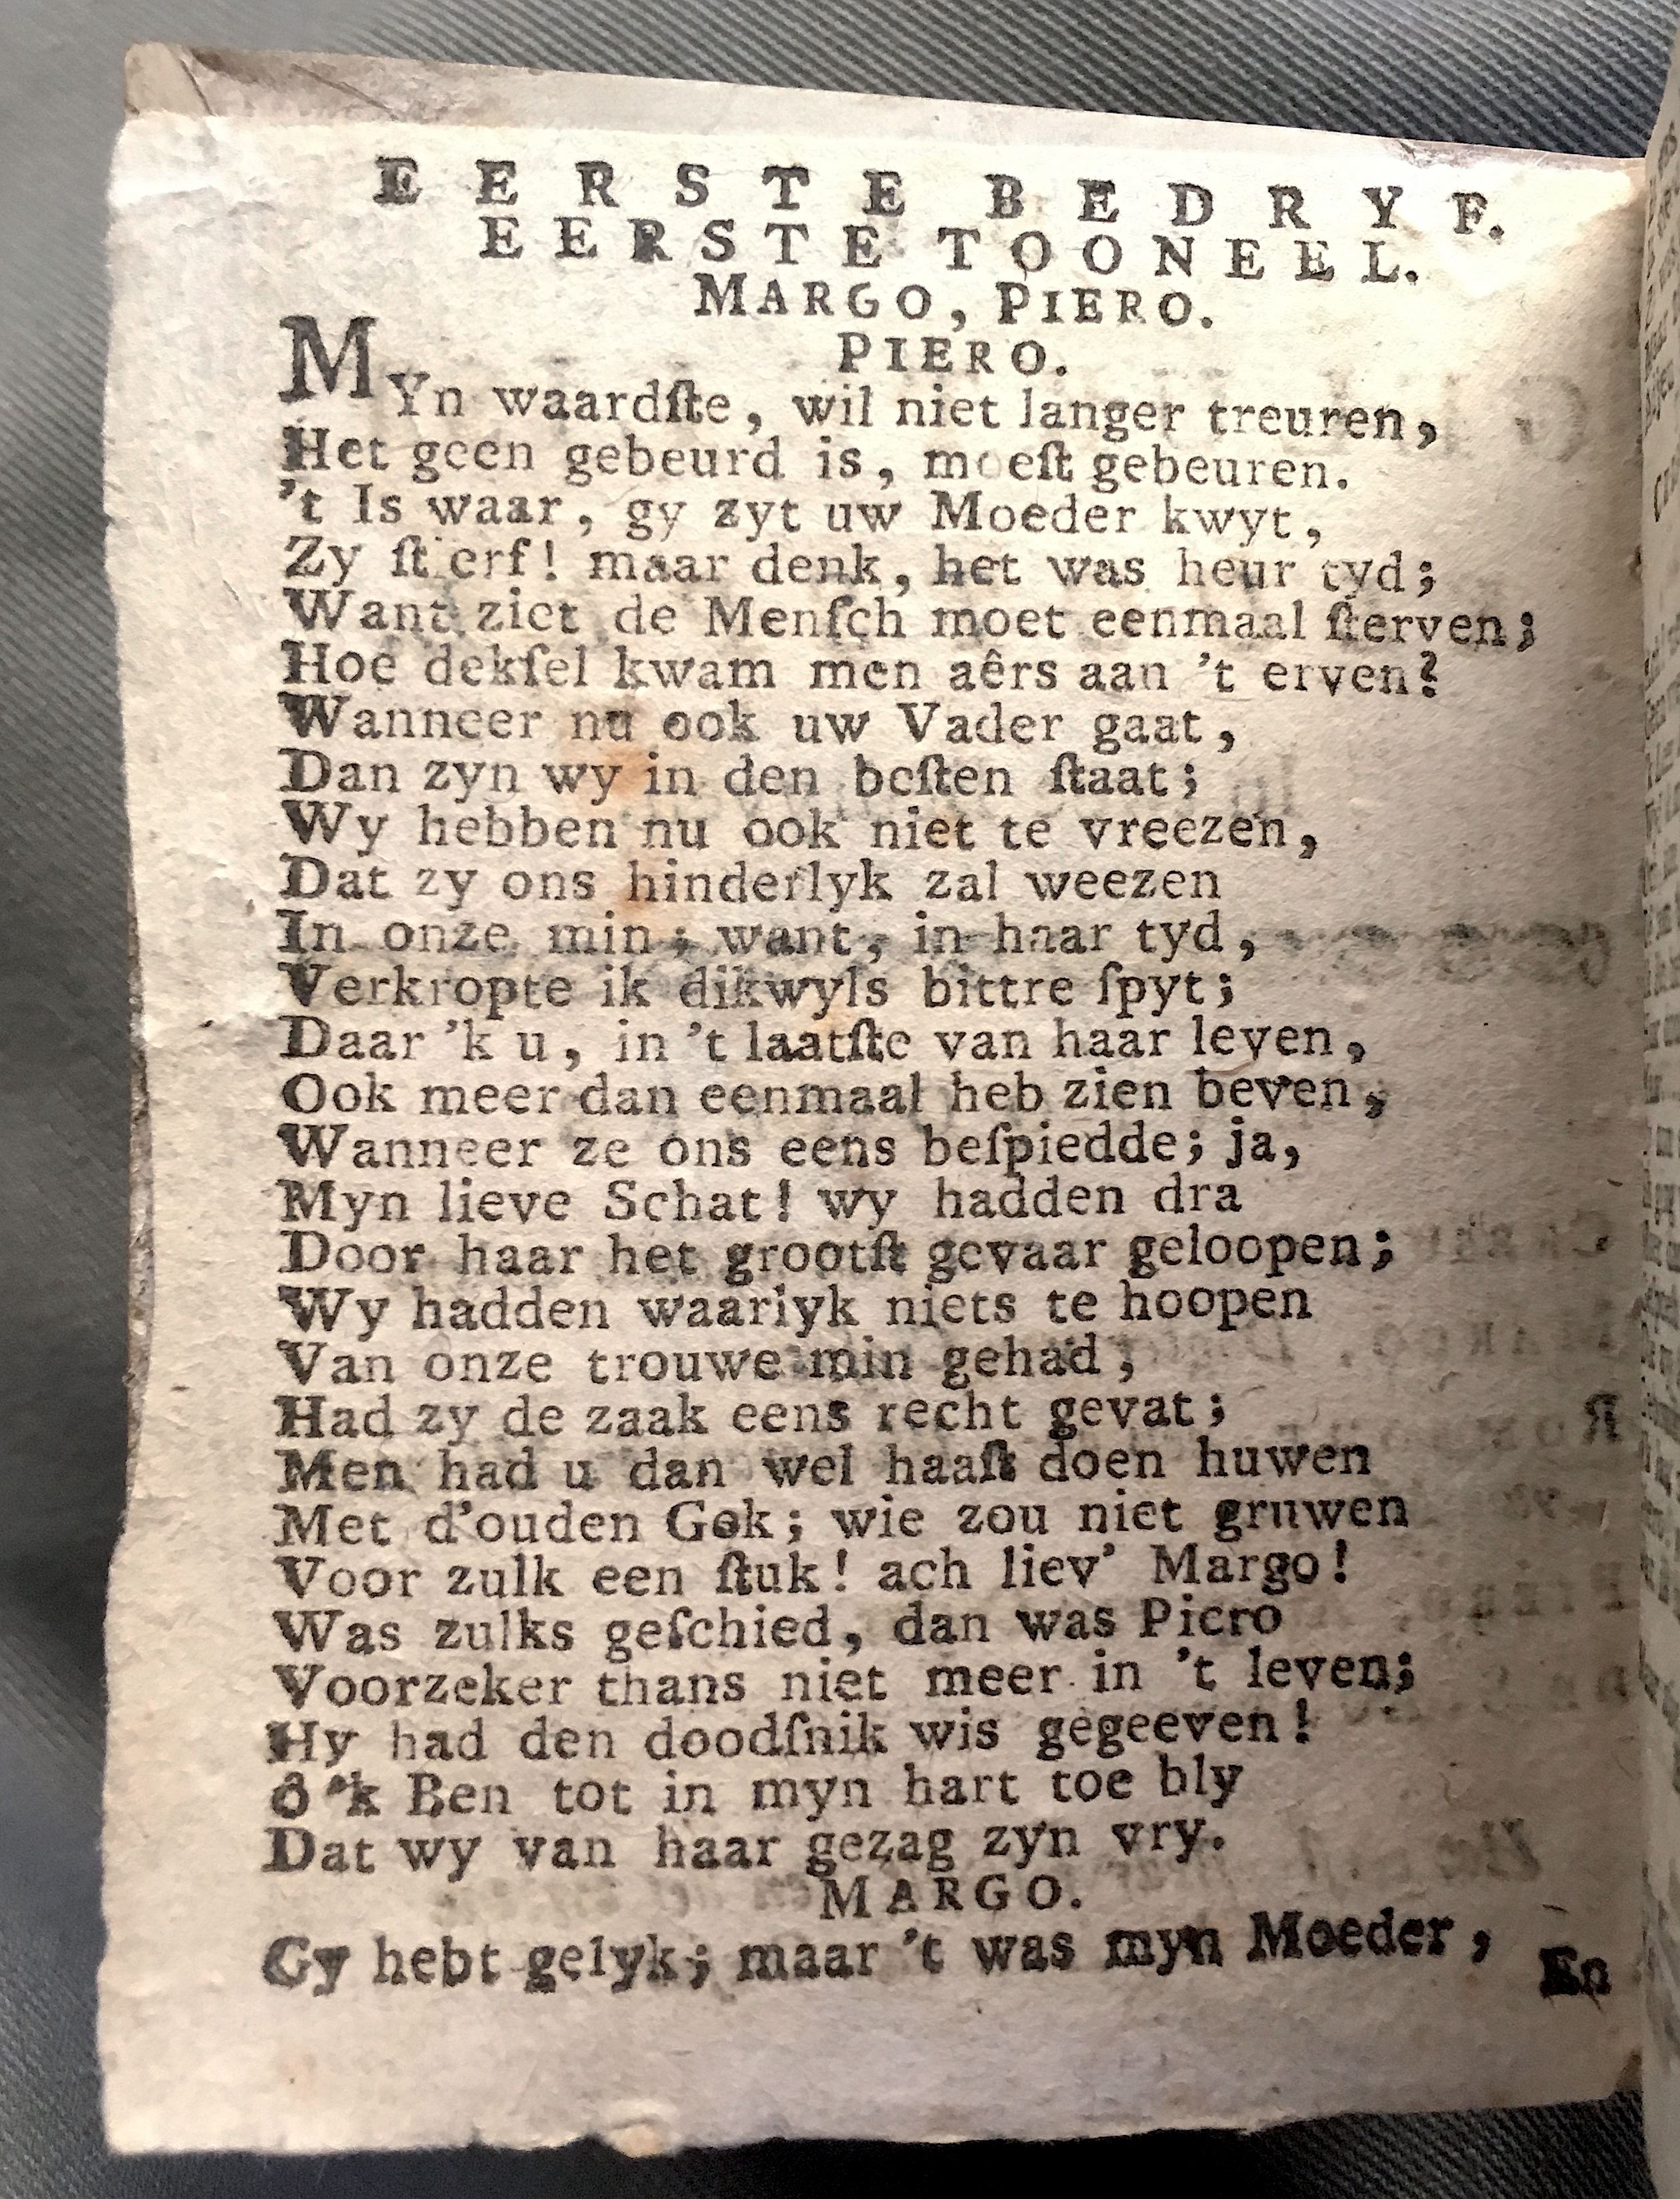 EERSTE BEDRYF.
EERSTE TOONEEL.
MARGO, PIERO.
PIERO.
MYn waardſte, wil niet langer treuren,
Het geen gebeurd is, moeſt gebeuren.
't Is waar, gy zyt uw Moeder kwyt,
Zy ſtierf! maar denk, het was heur tyd;
Want ziet de Menſch moet eenmaal ſterven;
Hoe dekſel kwam men aêrs aan 't erven?
Wanneer nu ook uw Vader gaat,
Dan zyn wy in den beſten ſtaat;
Wy hebben nu ook niet te vreezen,
Dat zy ons hinderlyk zal weezen
In onze min; want, in haar tyd,
Verkropte ik dikwyls bittre ſpyt;
Daar 'k u, in 't laatſte van haar leven,
Ook meer dan eenmaal heb zien beven,
Wanneer ze ons eens beſpiedde; ja,
Myn lieve Schat! wy hadden dra
Door haar het grootſt gevaar geloopen;
Wy hadden waarlyk niets te hoopen
Van onze trouwe min gehad,
Had zy de zaak eens recht gevat;
Men had u dan wel haaſt doen huwen
Met d'ouden Gek; wie zou niet gruwen
Voor zulk een ſtuk! ach liev' Margo!
Was zulks geſchied, dan was Piero
Voorzeker thans niet meer in 't leven;
Hy had den doodſnik wis gegeeven!
ô 'k Ben tot in myn hart toe bly
Dat wy van haar gezag zyn vry.
MARGO.
Gy hebt gelyk; maar 't was myn Moeder,
En